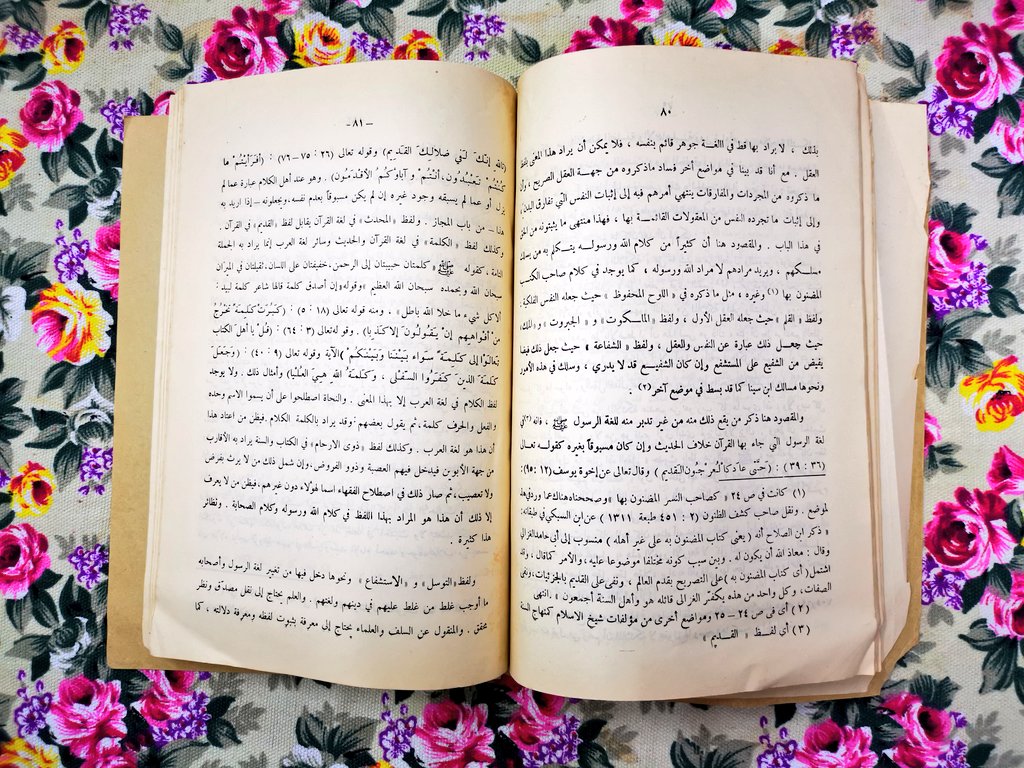 ٨٠
بذلك ، لا يراد بها قط في اللغة جوهر قائم بنفسه ، فلا يمكن أن يراد هذا المعنى بلفظ
العقل . مع أنا قد بينا في مواضع أخر فساد ماذكروه من جهة العقل الصريح ، وأن
ما ذكروه من المجردات والمفارقات ينتهى أمرهم فيه إلى إثبات النفس التي تفارق البدن ،
وإلى إثبات ما تجرده النفس من المعقولات القائمة بها ، فهذا منتهى ما يثبتونه من الحق
في هذا الباب . والمقصود هنا أن كثيراً من كلام الله ورسوله يتكلم به من يسلك
مسلكهم ، ويريد مرادهم لا مراد الله ورسوله ، كما يوجد في كلام صاحب الكتب
المضنون بها (١) وغيره ، مثل ما ذكره في « اللوح المحفوظ » حيث جعله النفس الفلكية ،
ولفظ « القلم » حيث جعله العقل الأول ، ولفظ « الملكوت » و « الجبروت » و « الملك »
حيث جعل ذلك عبارة عن النفس والعقل ، ولفظ « الشفاعة » حيث جعل ذلك فيضا
يفيض من الشفيع على المستشفع وإن كان الشفيع قد لا يدري ، وسلك في هذه الأمور
ونحوها مسالك ابن سينا كما قد بسط في موضع آخر (٢) .
والمقصود هنا ذكر من يقع ذلك منه من غير تدبر منه للغة الرسول ﷺ ، فانه (٣)
لغة الرسول التي جاء بها القرآن خلاف الحديث وإن كان مسبوقاً بغيره كقوله تعالى
(٣٦ : ٣٩) : (حَتَّى عَادَ كَالْعُرْجُونِ الْقَدِيمِ ) وقال تعالى عن إخوة يوسف (١٢ :٩٥):
(١) كانت في ص ٢٤ « كصاحب النسر المضنون بها » وصححناه هناك عما ورد في هذ
لموضع . ونقل صاحب كشف الظنون ( ٢ : ٤٥١ طبعة ١٣١١ ) عن ابن السبكي في طبقاته
« ذكر ابن الصلاح أنه ( يعنى كتاب المضنون به على غير أهله ) منسوب إلى أبى حامد الغزالى
وقال : معاذ الله أن يكون له . وبين سبب كونه مختلقا موضوعا عليه ، والأمر كما قال ، وقد
اشتمل ( أى كتاب المضنون به ) على التصريح بقدم العالم ، ونفى على القديم بالجزئيات ، ونفى
الصفات ، وكل واحد من هذه يكفّر الغزالى قائله هو وأهل السنة أجمعون » . انتهى
(٢) أى في ص ٢٤ – ٢٥ ومواضع أخرى من مؤلفات شيخ الاسلام كمنهاج السنة
(٣) أى لفظ « القديم »
– ٨١-
(تَاللهِ إِنَّكَ لَفِي ضَلَالِكَ الْقَدِيمِ) وقوله تعالى (٢٦ : ٧٥ –٧٦) : (أَفَرَأَيْتُمْ مَا
كُنْتُمْ تَعْبُدُونَ، أَنْتُمْ وَآبَاؤُكُمُ الْأَقْدَمُونَ) . وهو عند أهل الكلام عبارة عما لم
يزل أو عما لم يسبقه وجود غيره إن لم يكن مسبوقاً بعدم نفسه، ويجعلونه –إذا اريد به
هذا – من باب المجاز . ولفظ « المحدث » في لغة القرآن يقابل لفظ «القديم» في القرآن .
وكذلك لفظ « الكلمة » في لغة القرآن والحديث وسائر لغة العرب إنما يراد به الجملة
التامة ، كقوله ﷺ «كلمتان حبيبتان إلى الرحمن، خفيفتان على اللسان، ثقيلتان في الميزان
سبحان الله وبحمده سبحان الله العظيم » وقوله «إن أصدق كلمة قالها شاعر كلمة لبيد :
ألا كل شيء ما خلا الله باطل » . ومنه قوله تعالى (١٨ : ٥) : (كَبُرَتْ كَلِمَةً تَخْرُجُ
من أفواههم إِنْ يَقُولُونَ إلا كَذِبا) . وقوله تعالى (٣ : ٦٤) : (قُلْ يا أهل الكتاب
تَعَالَوْا إلى كَلِمَةٍ سَوَاء بَيْنَنا وَبَيْنَكُمْ) الآية وقوله تعالى (٩ : ٤٠) : (وَجَعَلَ
كَلِمَةَ الَّذِينَ كَفَرُوا السُّفْلَى ، وَكَلِمَةُ اللهِ هِيَ الْعُلْيا) وأمثال ذلك . ولا يوجد
لفظ الكلام في لغة العرب إلا بهذا المعنى . والنحاة اصطلحوا على أن يسموا الاسم وحده
والفعل والحرف كلمة، ثم يقول بعضهم :وقد يراد بالكلمة الكلام. فيظن من اعتاد هذا
أن هذا هو لغة العرب . وكذلك لفظ « ذوى الارحام » في الكتاب والسنة يراد به الأقارب
من جهة الأبوين فيدخل فيهم العصبة وذوو الفروض، وإن شمل ذلك من لا يرث بفرض
ولا تعصيب، ثم صار ذلك في اصطلاح الفقهاء اسما لهؤلاء دون غيرهم، فيظن من لا يعرف
إلا ذلك أن هذا هو المراد بهذا اللفظ في كلام الله ورسوله وكلام الصحابة . ونظائر
هذا كثيرة .
ولفظ «التوسل» و « الاستشفاع » ونحوها دخل فيها من تغيير لغة الرسول وأصحابه
ما أوجب غلط من غلط عليهم في دينهم ولغتهم . والعلم يحتاج إلى نقل مصدق ونظر
محقق . والمنقول عن السلف والعلماء يحتاج إلى معرفة بثبوت لفظه ومعرفة دلالته ، كما